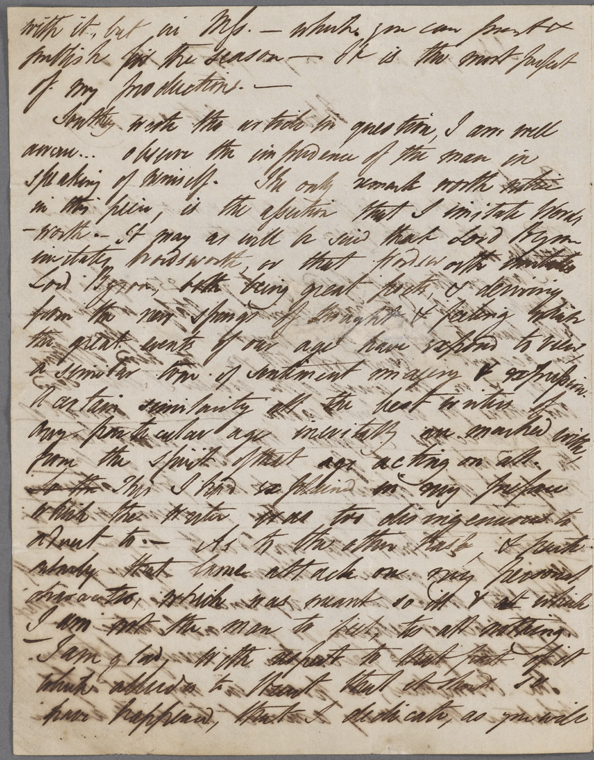 with it, but in Mss. — which you can print &
publish in the season — It is the most perfect
of my productions. —
Southey wrote the article in question, I am well
aware... observe the impudence of the man in
speaking of himself. The only remark worth notice
in this piece, is the assertion that I imitate Words
-worth — It may as well be said that Lord Byron
imitates Wordsworth, or that Wordsworth imitates
Lord Byron, both being great poets, & deriving
from the new springs of thought & feeling which
the great events of our age have exposed to view,
a similar tone of sentiment imagery & expression.
A certain similarity all the best writers of
any particular age inevitably are marked with,
from the spirit of that age acting on all.
This I had explained in my preface
which the writer was too disingenuous to
advert to. — As to the other trash, & parti-
cularly that lame attack on my personal
character, which was meant so ill & at which
I am not the man to feel, tis all nothing.
I am glad, with respect to that part of it
which alludes to Hunt that it should so
have happened, that I dedicate, as you will